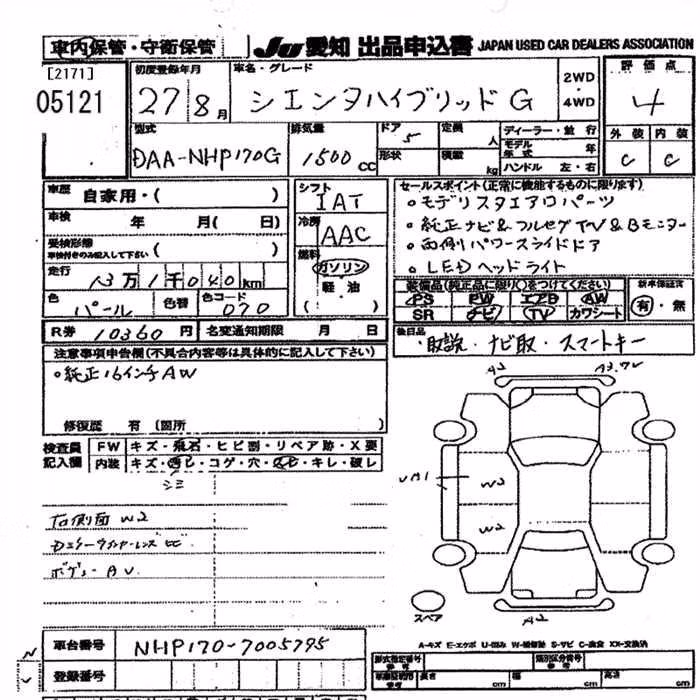 車内保管・守衛保管
JU 愛知 出品申込書 JAPAN USED CAR DEALERS ASSOCIATION
[2171]
05121
初度登録年月
27 / 8月
車名・グレード
シエンタハイブリッド G
2WD
・
4WD
評価点
4
型式
DAA-NHP170G
排気量
1500 CC
ドア
5
形状
定員 人
積載 kg
ディーラー・並行
モデル年式 年
ハンドル 左・右
外装 内装
C C
車歴 自家用・( )
車検 年 月( 日)
受検形態
車検付きのみ記入して下さい ( )
走行 13万1千040km
色 パール 色替 色コード 070
シフト
IAT
冷房
AAC
燃料
ガソリン
軽・油
( )
セールスポイント(正常に機能するものに限ります)
・モデリスタエアロパーツ
・純正ナビ&フルセグTV&Bモニター
・両側パワースライドドア
・LEDヘッドライト
装備品(純正品に限り○をつけてください)
PS PW エアB AW
SR ナビ TV カワシート
新車保証書
有・無
R券 10360 円 名変通知期限 月 日
後日品
・取説・ナビ取・スマートキー
注意事項申告欄(不具合内容等は具体的に記入して下さい)
・純正16インチAW
修復歴 有 (箇所
検査員記入欄
FW キズ・飛石・ヒビ割・リペア跡・X要
内装 キズ・汚レ・コゲ・穴・スレ・キレ・破レ
シミ
右側面 W2
ボデー AU
A2
W2
W2
A2
スペア
A-キズ E-エクボ U-凹み W-補修跡 S-サビ C-腐食 XX-交換済
車台番号 NHP170-7005795
登録番号
型式指定番号 類別区分番号
長さ cm 幅 cm 高さ cm